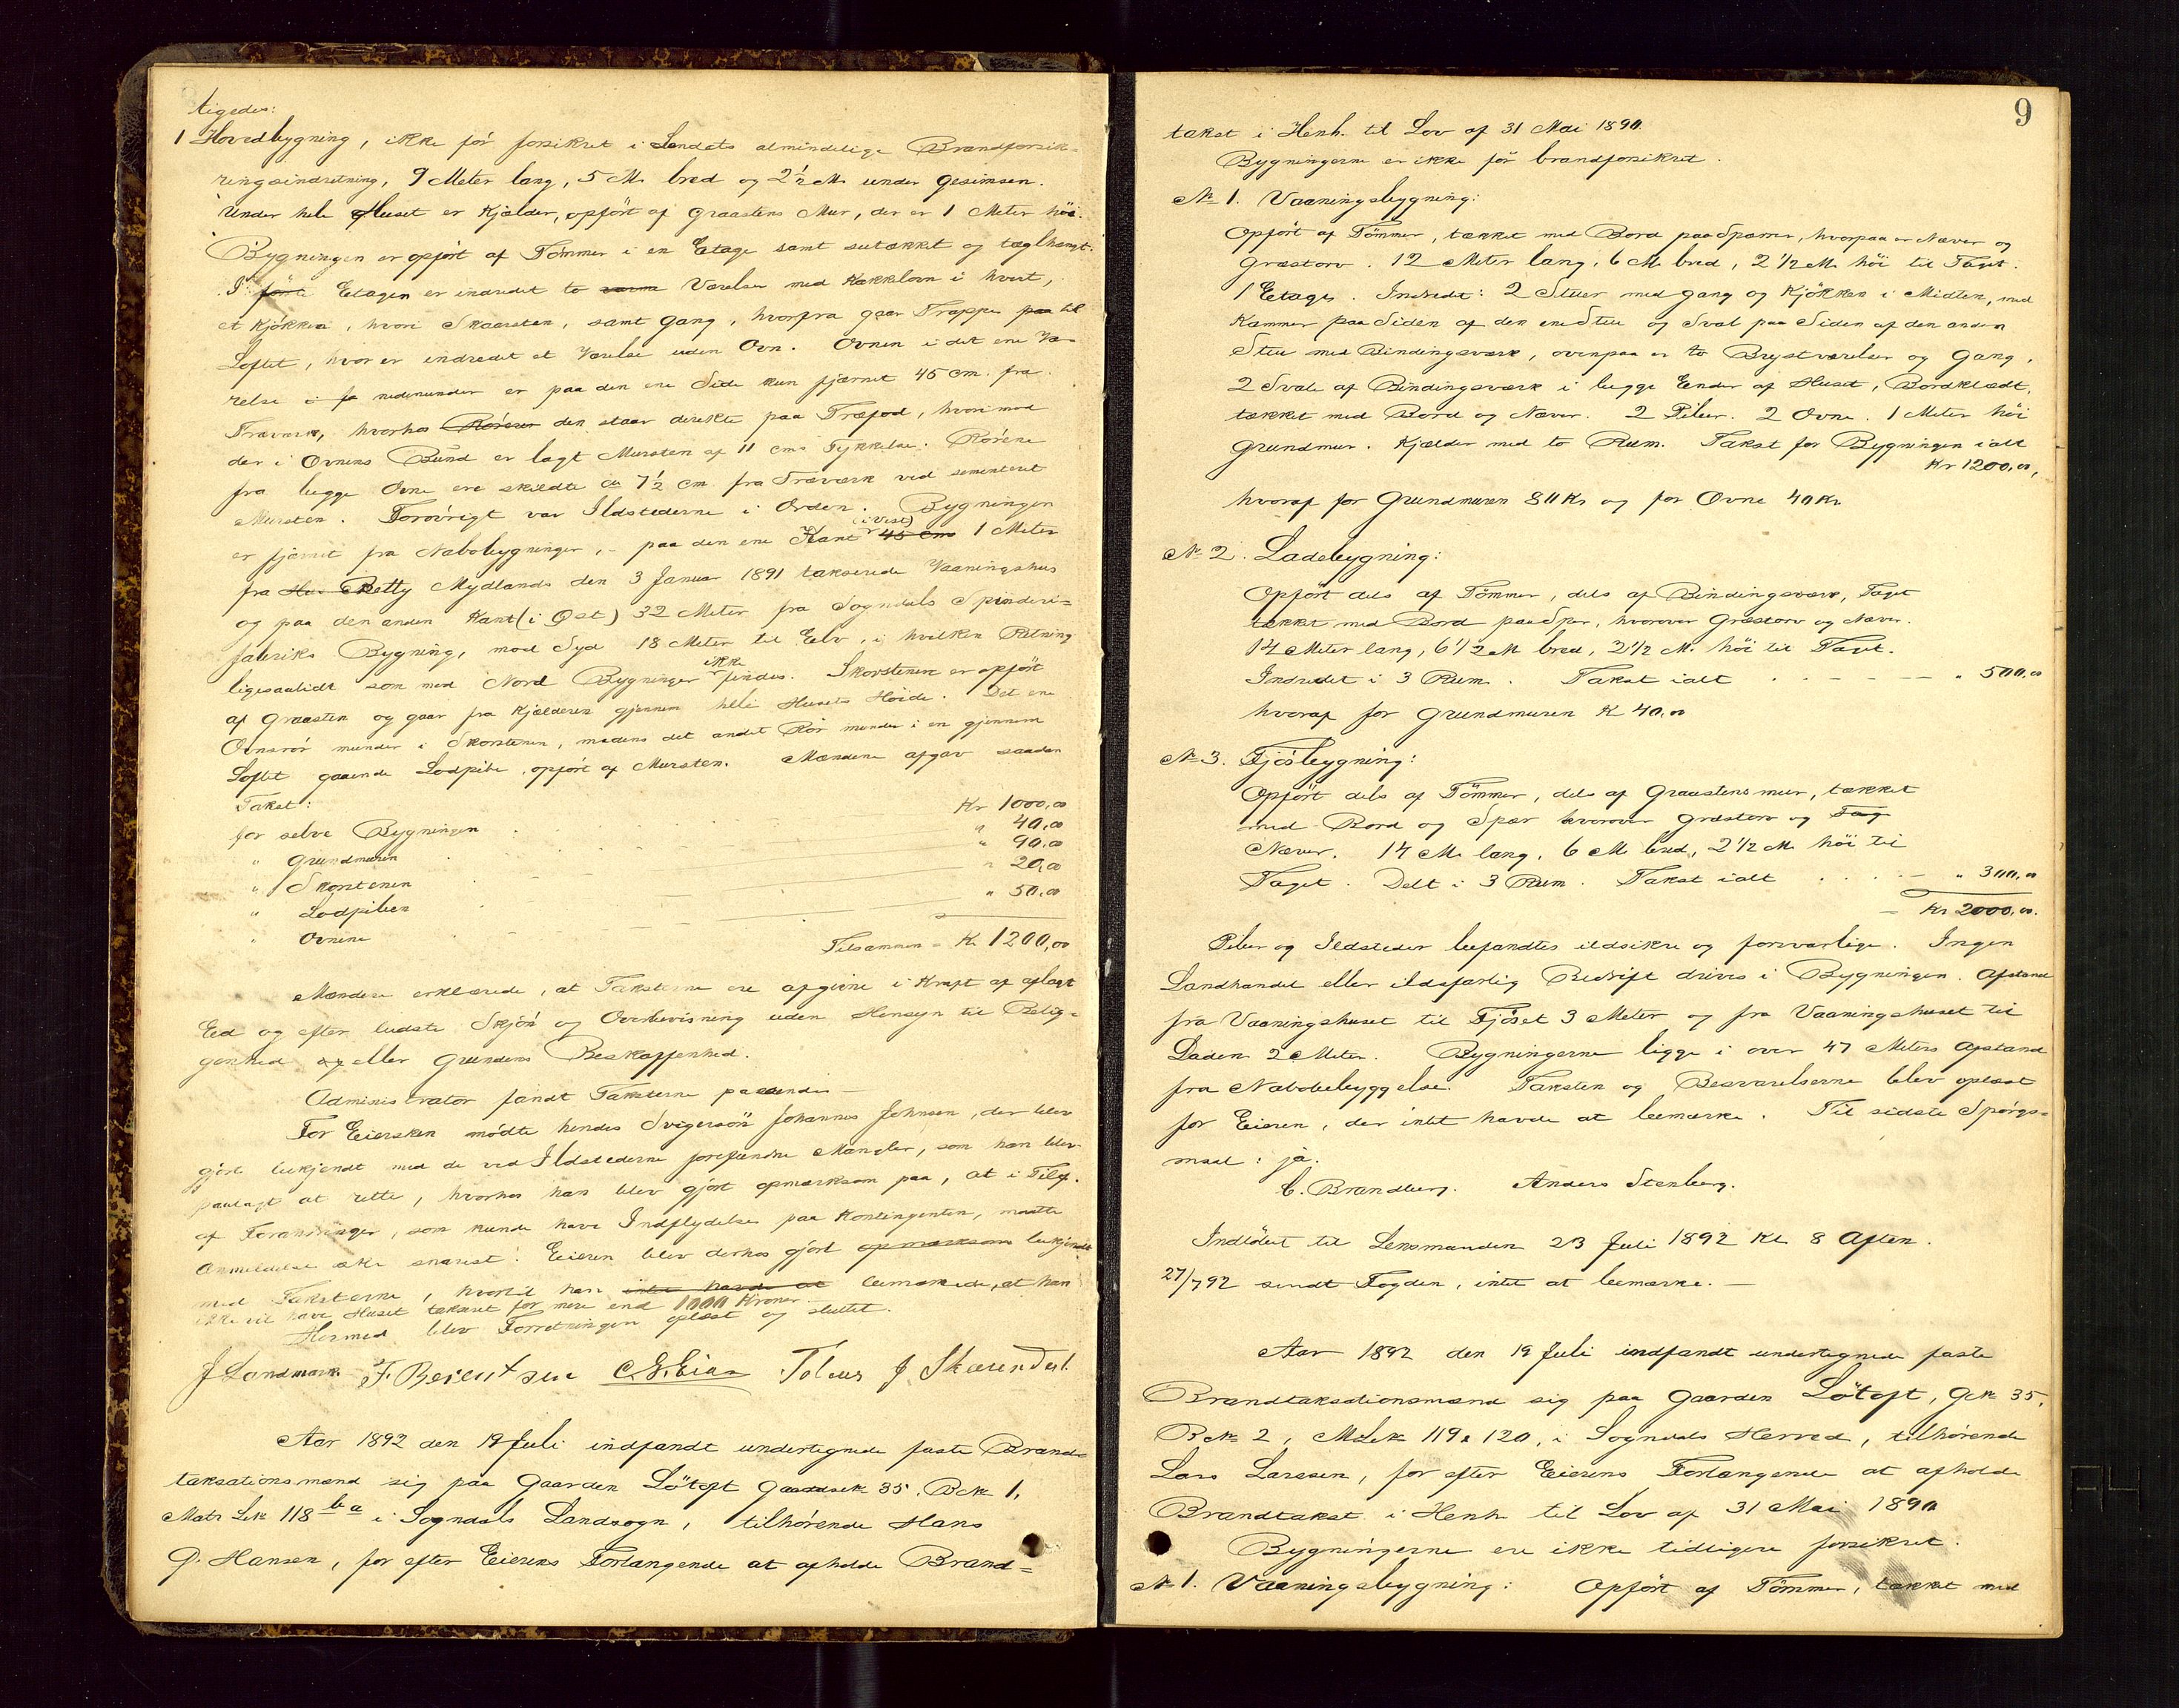 tigedes:
1 Hovedbygning, ikke før forsikret i Landets almindelige Brandforsik-
ringsindretning, 9 Meter lang, 5 M. bred og 2½ M. under Gesimsen.
Under hele Huset er Kjælder, opført af Graastens Mur, der er 1 Meter høi.
Bygningen er opført af Tømmer i en Etage samt sutækket og taglhængt.
I første Etagen er indredet to varme Værelser med Kakklovn i hvert,
et Kjøkken, hvori Skaarsten, samt Gang, hvorfra gaar Trappe paa til
Loftet, hvor er indredet et Værelse uden Ovn. Ovnen i det ene Væ-
relse i fø nedenunder er paa den ene Side kun fjærnet 45 cm. fra
Træværk, hvorhos Rørene den staar direkte paa Træfod, hvorimod
der i Ovnens Bund er lagt Mursten af 11 cms Tykkelse. Rørene
fra begge Ovne ere skildte ca 7½ cm fra Træværk ved sementeret
Mursten. Forøvrigt var Ildstederne i Orden. Bygningen
er fjærnet fra Nabobygninger, - paa den ene Kant (i Vest) 45 cm 1 Meter
fra Hu Betty Mydlands den 3 Januar 1891 takserede Vaaningshus
og paa den anden Kant (i Øst) 32 Meter fra Sogndals Spinderi-
fabriks Bygning, mod Syd 18 Meter til Elv, i hvilken Retning
ligesaalidt som mod Nord Bygninger ikke findes. Skorstenen er opført
af Graasten og gaar fra Kjælderen gjennem hele Husets Høide. Det ene
Ovnsrør munder i Skorstenen, medens det andet Rør munder i en gjennem
Loftet gaaende Lodpibe, opført af Mursten. Mændene afgav saadan
Takst:
for selve Bygningen Kr 1000,00
" Grundmuren " 40,00
" Skorstenen " 90,00
" Lodpiben " 20,00
" Ovnene " 50,00
Tilsammen - Kr 1200,00
Mændene erklærede, at Taksterne ere afgivne i Kraft af aflagt
Eed og efter bedste Skjøn og Overbevisning uden Hensyn til Belig-
genhed og eller Grundens Beskaffenhed.
Administrator fandt Taksterne passende -
For Eiersken mødte hendes Svigersøn Johannes Johnsen, der blev
gjort bekjendt med de ved Ildstederne forefundne Mangler, som han blev
paalagt at rette, hvorhos han blev gjort opmærksom paa, at i Tilf.
af Forandringer, som kunde have Indflydelse paa Kontingenten, maatte
Anmeldelse ske snarest. Eieren blev derhos gjort opmærksom bekjendt
med Taksterne, hvortil han intet havde at bemærkede, at han
ikke vil have Huset takseret for mere end 1000 Kroner.
Hermed blev Forretningen oplæst og sluttet.
J Landmark F. Berentsen Tobias J Skarendal.
Aar 1892 den 19 Juli indfandt undertegnede faste Brand-
taksationsmænd sig paa Gaarden Løtoft Gaardsnk 35. Bnk 1,
Matr Lnk 118 b a i Sogndals Landsogn, tilhørende Hans
G. Hansen, for efter Eierens Forlangende at afholde Brand-
9
takst i Henh. til Lov af 31 Mai 1890.
Bygningerne er ikke før brandforsikret.
No 1. Vaaningsbygning:
Opført af Tømmer, tækket med Bord paa Spærrer, hvorpaa er Næver og
Græstorv. 12 Meter lang, 6 M. bred, 2 1/2 M. høi til Taget.
1 Etages. Indredt: 2 Stuer med Gang og Kjøkken i Midten, med
Kammer paa Siden af den ene Stue og Sval paa Siden af den anden
Stue med Bindingsværk, ovenpaa er to Brystværelser og Gang,
2 Svale af Bindingsværk i begge Ender af Huset, Bordklædt,
tækket med Bord og Næver. 2 Piber. 2 Ovne. 1 Meter høi
Grundmur. Kjælder med to Rum. Takst for Bygningen ialt
Kr 1200,00,
hvoraf for Grundmuren 80 Kr og for Ovne 40 Kr
No 2. Ladebygning:
Opført dels af Tømmer, dels af Bindingsværk, Taget
tækket med Bord paa Spær, hvorover Græstorv og Næver.
14 Meter lang, 6 1/2 M bred, 2 1/2 M. høi til Taget.
Indredet i 3 Rum. Takst ialt " 500,00
hvoraf for Grundmuren K 40,00
No 3. Fjøsbygning:
Opført dels af Tømmer, dels af Graastens mur, tækket
med Bord og Spær hvorover Græstorv og Tag
Næver. 14 M. lang, 6 M. bred, 2 1/2 M. høi til
Taget. Delt i 3 Rum. Takst ialt " 300,00
Kr 2000,00.
Piber og Ildsteder befandtes ildsikre og forsvarlige. Ingen
Landhandel eller ildsfarlig Bedrift drives i Bygningen. Afstand
fra Vaaningshuset til Fjøset 3 Meter og fra Vaaningshuset til
Laden 2 Meter. Bygningerne ligge i over 47 Meters Afstand
fra Nabobebyggelse. Taksten og Besvarelserne blev oplæst
for Eieren, der intet havde at bemærke. Til sidste Spørgs-
maal: ja.
C. Brandberg. Anders Stenberg.
Indløbet til Lensmanden 23 Juli 1892 Kl 8 Aften.
27/7 92 sendt Fogden, intet at bemærke. -
Aar 1892 den 19 Juli indfandt undertegnede faste
Brandtaksationsmænd sig paa Gaarden Løtoft, Gnk 35,
Bnk 2, MLnk 119 & 120, i Sogndals Herred, tilhørende
Lars Larssen, for efter Eierens Forlangende at afholde
Brandtakst i Henh til Lov af 31 Mai 1890
Bygningerne ere ikke tidligere forsikret.
No 1. Vaaningsbygning: Opført af Tømmer, tækket med